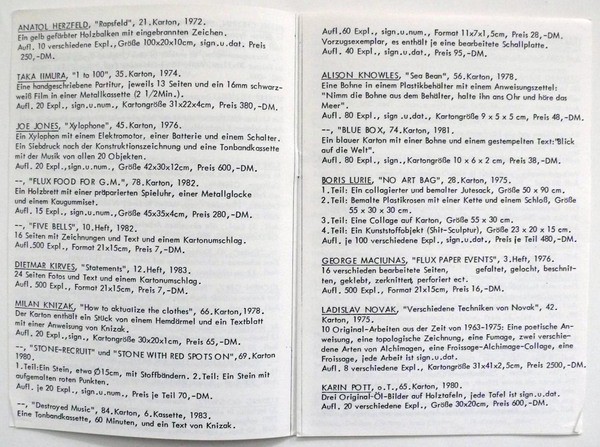 ANATOL HERZFELD, "Rapsfeld", 21.Karton, 1972.
Ein gelb gefärbter Holzbalken mit eingebrannten Zeichen.
Aufl. 10 verschiedene Expl.,Größe 100x20x10cm, sign.u.dat. Preis
250,-DM.
TAKA IIMURA, "1 to 100", 35.Karton, 1974.
Eine handgeschriebene Partitur, jeweils 13 Seiten und ein 16mm schwarz-
weiß Film in einer Metallkassette (2 1/2Min.).
Aufl. 20 Expl., sign.u.num., Kartongröße 31x22x4cm, Preis 380,-DM.
JOE JONES, "Xylophone", 45.Karton, 1976.
Ein Xylophon mit einem Elektromotor, einer Batterie und einem Schalter.
Ein Siebdruck nach der Konstruktionszeichnung und eine Tonbandkassette
mit der Musik von allen 20 Objekten.
Aufl. 20 Expl.,sign.u.num., Größe 42x30x12cm, Preis 600,-DM.
--, "FLUX FOOD FOR G.M.", 78.Karton, 1982.
Ein Holzbrett mit einer präparierten Spieluhr, einer Metallglocke
und einem Kaugummiset.
Aufl. 15 Expl., sign.u.num.,Größe 45x35x4cm, Preis 280,-DM.
--, "FIVE BELLS", 10.Heft, 1982.
16 Seiten mit Zeichnungen und Text und einem Kartonumschlag.
Aufl.500 Expl., Format 21x15cm, Preis 7,-DM.
DIETMAR KIRVES, "Statements", 12.Heft, 1983.
24 Seiten Fotos und Text und einem Kartonumschlag.
Aufl. 500 Expl., Format 21x15cm, Preis 7,-DM.
MILAN KNIZAK, "How to aktuatize the clothes", 66.Karton,1978.
Der Karton enthält ein Stück von einem Hemdärmel und ein Textblatt
mit einer Anweisung von Knizak.
Aufl. 20 Expl.,sign., Kartongröße 30x20x1cm, Preis 65,-DM.
--, "STONE-RECRUIT" und "STONE WITH RED SPOTS ON",69.Karton
1980.
1.Teil:Ein Stein, etwa Ø15cm, mit Stoffbändern. 2.Teil: Ein Stein mit
aufgemalten roten Punkten.
Aufl. je 20 Expl., sign.u.num., Preis je Teil 70,-DM.
--, "Destroyed Music", 84.Karton, 6.Kassette, 1983.
Eine Tonbandkassette, 60 Minuten, und ein Text von Knizak.
Aufl.60 Expl., sign.u.num., Format 11x7x1,5cm, Preis 28,-DM.
Vorzugsexemplar, es enthält je eine bearbeitete Schallplatte.
Aufl. 40 Expl., sign.u.dat., Preis 95,-DM.
ALISON KNOWLES, "Sea Bean", 56.Karton, 1978.
Eine Bohne in einem Plastikbehälter mit einem Anweisungszettel:
"Nimm die Bohne aus dem Behälter, halte ihn ans Ohr und höre das
Meer".
Aufl. 80 Expl., sign.u.dat., Kartongröße 9 x 5 x 5 cm, Preis 48,-DM.
--, "BLUE BOX, 74.Karton, 1981.
Ein blauer Karton mit einer Bohne und einem gestempelten Text:"Blick
auf die Welt".
Aufl. 80 Expl., sign., Kartongröße 10 x 6 x 2 cm, Preis 38,-DM.
BORIS LURIE, "NO ART BAG", 28.Karton, 1975.
1.Teil: Ein collagierter und bemalter Jutesack, Größe 50 x 90 cm.
2.Teil: Bemalte Plastikrosen mit einer Kette und einem Schloß, Größe
55 x 30 x 30 cm.
3.Teil: Eine Collage auf Karton, Größe 55 x 30 cm.
4.Teil: Ein Kunststoffobjekt (Shit-Sculptur), Größe 23 x 20 x 15 cm.
Aufl. je 100 verschiedene Expl., sign.u.dat., Preis je Teil 480,-DM.
GEORGE MACIUNAS, "FLUX PAPER EVENTS", 3.Heft, 1976.
16 verschieden bearbeitete Seiten, gefaltet, gelocht, beschnit-
ten, geklebt, zerknittert, perforiert ect.
Aufl. 500 Expl., Format 21x15cm, Preis 16,-DM.
LADISLAV NOVAK, "Verschiedene Techniken von Novak", 42.
Karton, 1975.
10 Original-Arbeiten aus der Zeit von 1963-1975: Eine poetische An-
weisung, eine topologische Zeichnung, eine Fumage, zwei verschie-
dene Arten von Alchimagen, eine Froissage-Alchimage-Collage, eine
Froissage, jede Arbeit ist sign.u.dat.
Aufl. 8 verschiedene Expl., Kartongröße 31x41x2,5cm, Preis 2500,-DM.
KARIN POTT, o.T., 65.Karton, 1980.
Drei Original-Öl-Bilder auf Holztafeln, jede Tafel ist sign.u.dat.
Aufl. 20 verschiedene Expl., Größe 30x20cm, Preis 600,-DM.